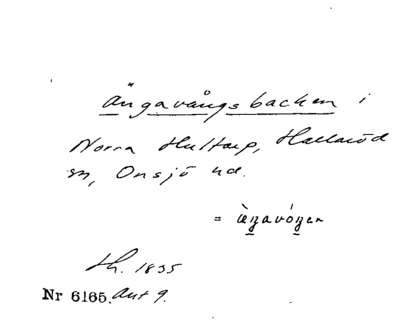 Ängavångsbacken i
Norra Hultarp, Hallaröd
sn, Onsjö hd.
= ègavógen
Lh. 1835
Nr 6165. Ant 9.